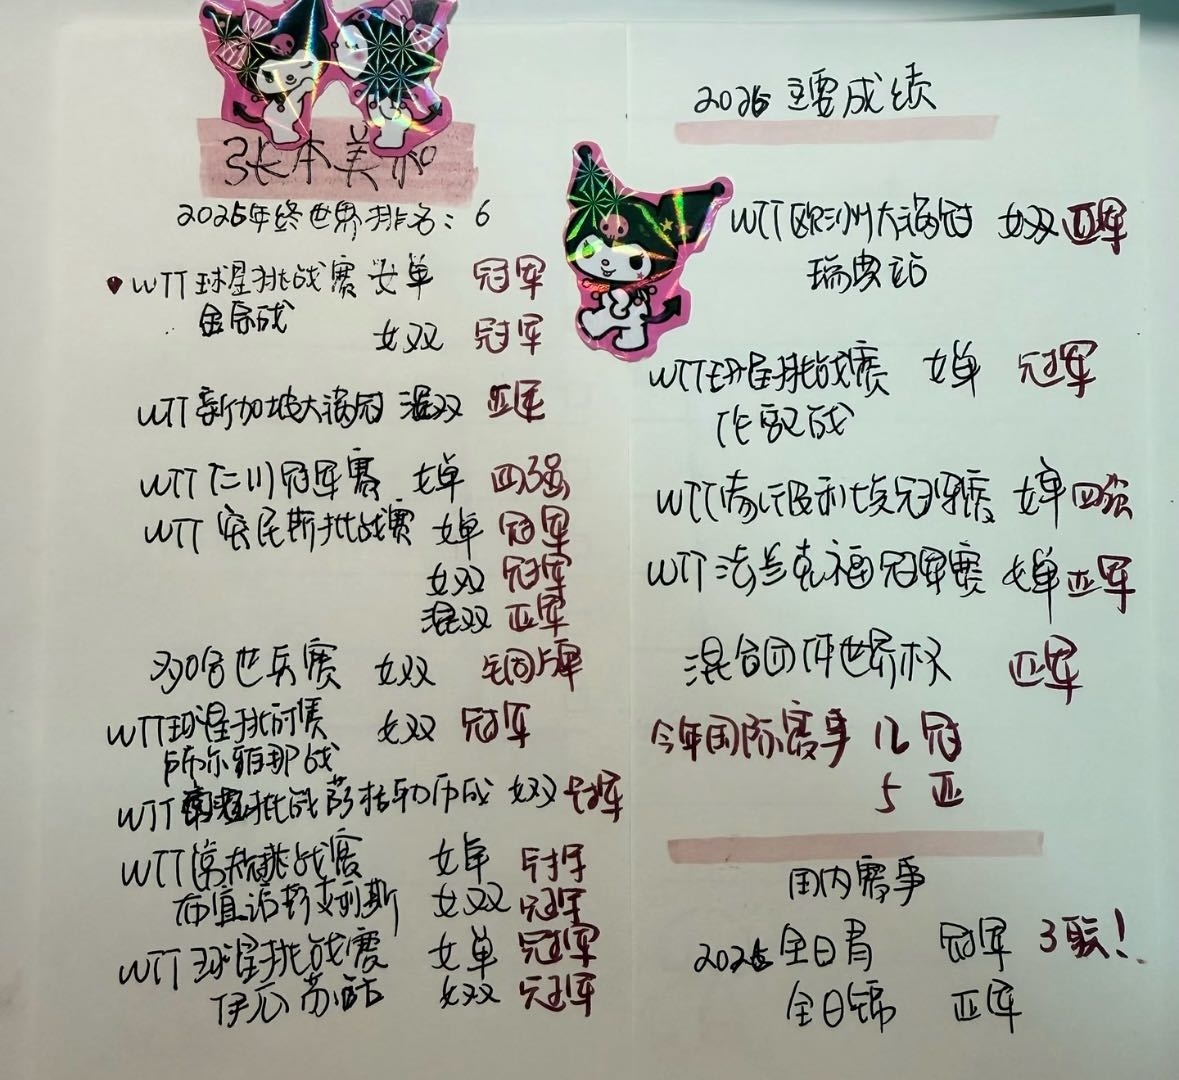 张本美和
2025年终世界排名：6
WTT球星挑战赛 女单 冠军
金奈战
女双 冠军
WTT新加坡大满冠 混双 亚军
WTT仁川冠军赛 女单 四强
WTT 挑战赛 女单 冠军
女双 冠军
混双 亚军
多哈世乒赛 女双 铜牌
WTT球星挑战赛 女双 冠军
卢布尔雅那战
WTT 挑战 女双 冠军
WTT 挑战赛 女单 冠军
布宜诺斯艾利斯 女双 冠军
WTT球星挑战赛 女单 冠军
伊瓜苏站 女双 冠军
2025 主要成绩
WTT欧洲大满冠 女双 亚军
瑞典站
WTT球星挑战赛 女单 冠军
WTT 冠军赛 女单 四强
WTT法兰克福冠军赛 女单 亚军
混合团体世界杯 亚军
今年国际赛事 12 冠
5 亚
国内赛事
2025 全日本 冠军 3联！
全日锦 亚军